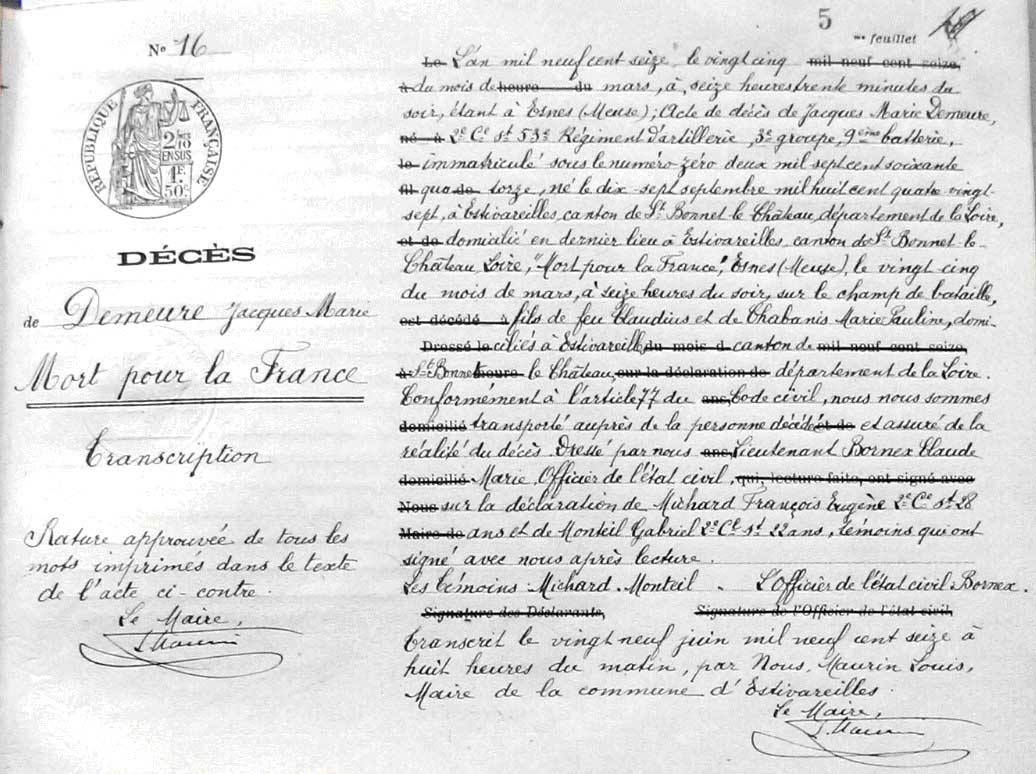 N° 16
RÉPUBLIQUE FRANÇAISE
2/10
EN SUS
1F.
50c
DÉCÈS
de Demeure Jacques Marie
Mort pour la France
Transcription
Rature approuvée de tous les
mots imprimés dans le texte
de l'acte ci-contre.
Le Maire,
L Maurin
5
me feuillet
Le L'an mil neuf cent seize, le vingt cinq mil neuf cent seize,
à du mois de heure du mars, à, seize heures trente minutes du
soir, étant à Esnes (Meuse); Acte de décès de Jacques Marie Demeure,
né à 2e Ce st 53e Régiment d'artillerie, 3e groupe, 9ème batterie,
le immatriculé sous le numéro zéro deux mil sept cent soixante
fil qua de torze, né le dix-sept septembre mil huit cent quatre vingt-
sept, à Estivareilles, canton de St Bonnet le Château, département de la Loire,
et de domicilié en dernier lieu à Estivareilles, canton de St Bonnet-le-
Château, Loire, "Mort pour la France", Esnes (Meuse), le vingt cinq
du mois de mars, à seize heures du soir, sur le champ de bataille,
est décédé à fils de feu Claudius et de Chabanis Marie Pauline, domi-
Dressé le ciliés à Estivareill du mois d canton de mil neuf cent seize,
à St Bonnet heure le Château, sur la déclaration de département de la Loire.
Conformément à l'article 77 du ans, Code civil, nous nous sommes
domicilié transporté auprès de la personne décédé et de et assuré de la
réalité du décès. Dressé par nous ans, Lieutenant Bornex Claude
domicilié Marie, Officier de l'état civil, qui, lecture faite, ont signé avec
Nous sur la déclaration de Michard François Eugène 2e Ce st 28
Maire de ans et de Monteil Gabriel 2e Ce st 22 ans, témoins qui ont
signé avec nous après lecture.
Les témoins: Michard. Monteil - L'Officier de l'état civil: Bornex.
Signature des Déclarants, Signature de l'Officier de l'état civil
Transcrit le vingt neuf juin mil neuf cent seize à
huit heures du matin, par Nous, Maurin Louis,
Maire de la commune d'Estivareilles.
Le Maire,
L Maurin